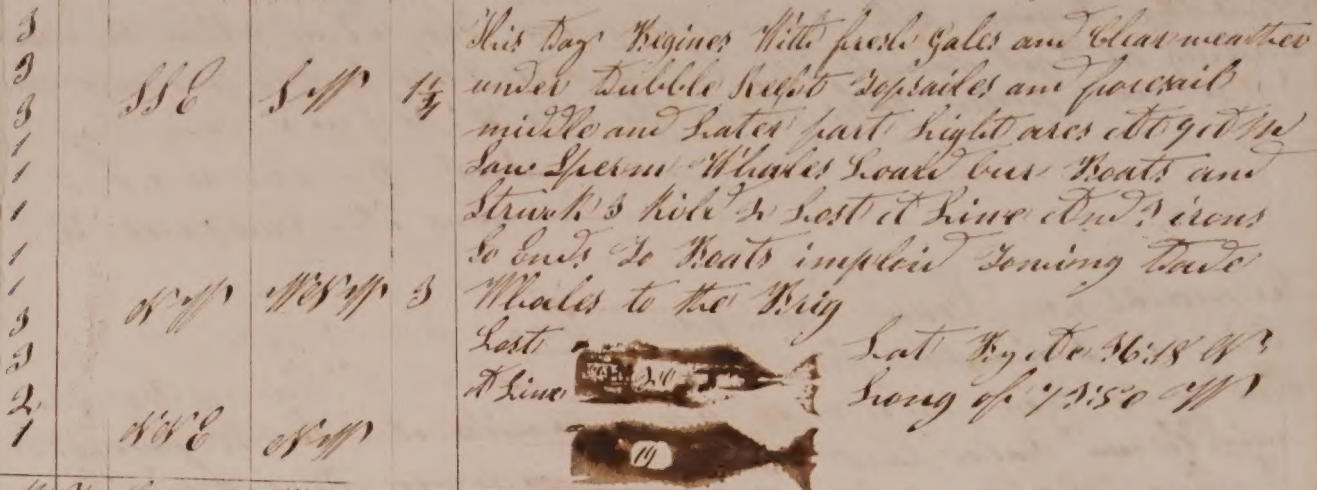 3
3
3 SSE SW 1¼
1
1
1
1
1 NW WNW 3
3
3
2
1 NNE NW
This Day Begines With fresh Gales and Clear weather
under Dubble Reeft Topsailes and foresail
middle and Later part Light ares At 9 AM
Saw Sperm Whales Loard bur Boats and
Struck 3 kild 2 Lost A Line And 3 irons
So Ends To Boats imploid Towing Dade
Whales to the Brig
Lost
A Line 20
19
Lat By 36:18 N
Long of 73:50 W